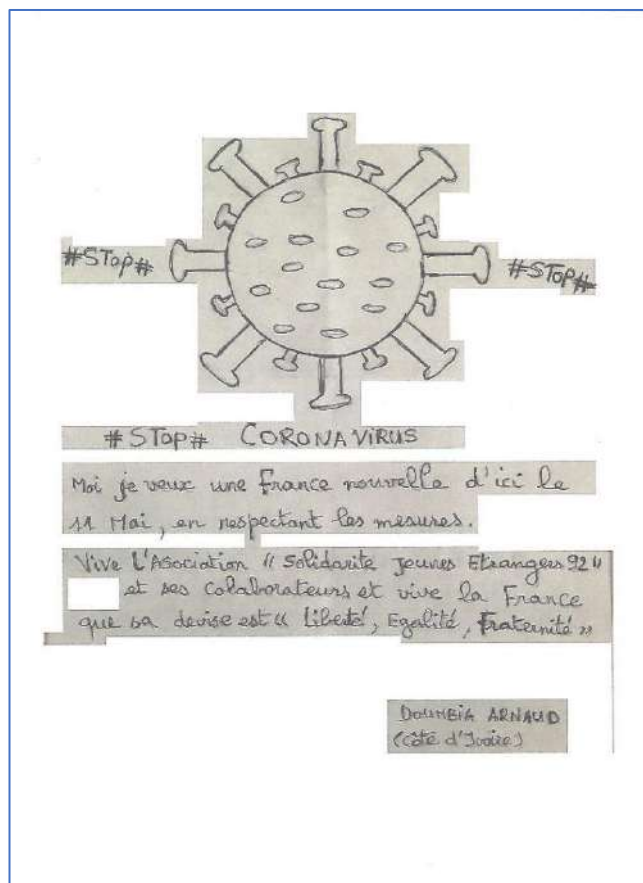 #STOP#
#STOP#
#STOP# CORONAVIRUS
Moi je veux une France nouvelle d'ici le
11 Mai, en respectant les mesures.
Vive L'Asociation "Solidarite jeunes Etrangers 92"
et ses colaborateurs et vive la France
que sa devise est « Liberté, Egalité, Fraternité »
DOUMBIA ARNAUD
(Côte d'Ivoire)